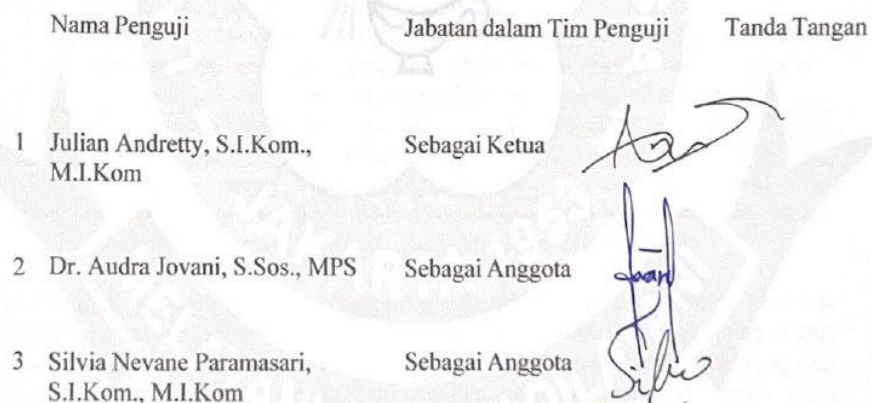 Nama Penguji Jabatan dalam Tim Penguji Tanda Tangan
1 Julian Andretty, S.I.Kom., Sebagai Ketua
M.I.Kom
2 Dr. Audra Jovani, S.Sos., MPS Sebagai Anggota
3 Silvia Nevane Paramasari, Sebagai Anggota
S.I.Kom., M.I.Kom